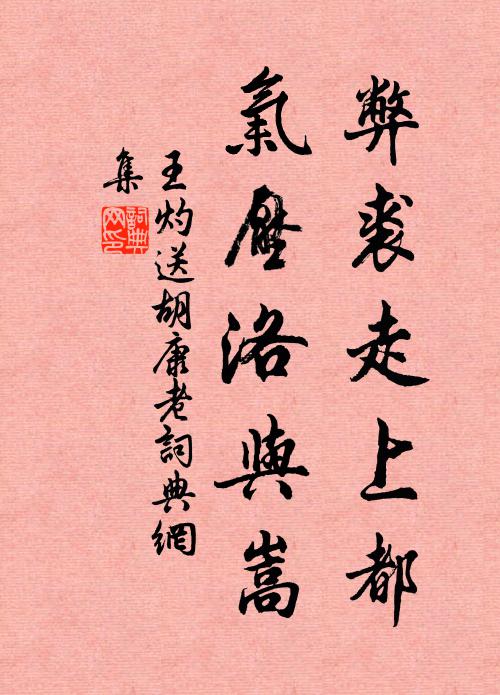 弊裘走上都
氣壓洛與嵩
王灼送胡康老詞典網
集
詞典網印